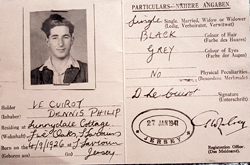 PARTICULARS—NÄHERE ANGABEN.
Single
Single, Married, Widow or Widower
(Ledig, Verheiratet, Verwitwet)
BLACK
Colour of Hair
(Farbe des Haares)
GREY
Colour of Eyes
(Farbe der Augen)
No
Physical Peculiarities.
(Besondere Merkmale)
D. Le Cuirot
Signature
(Unterschrift)
27 JAN 1941
JERSEY
Registration Officer.
(Der Meldeamt)
Holder
LE CUIROT
(Inhaber)
DENNIS PHILIP
Residing at
Sunnydale Cottage
(Wohnhaft)
Five Oaks, St Saviours
Born on the
4/9/1926
at
St Saviour
(Geboren am)
(in)
Jersey.